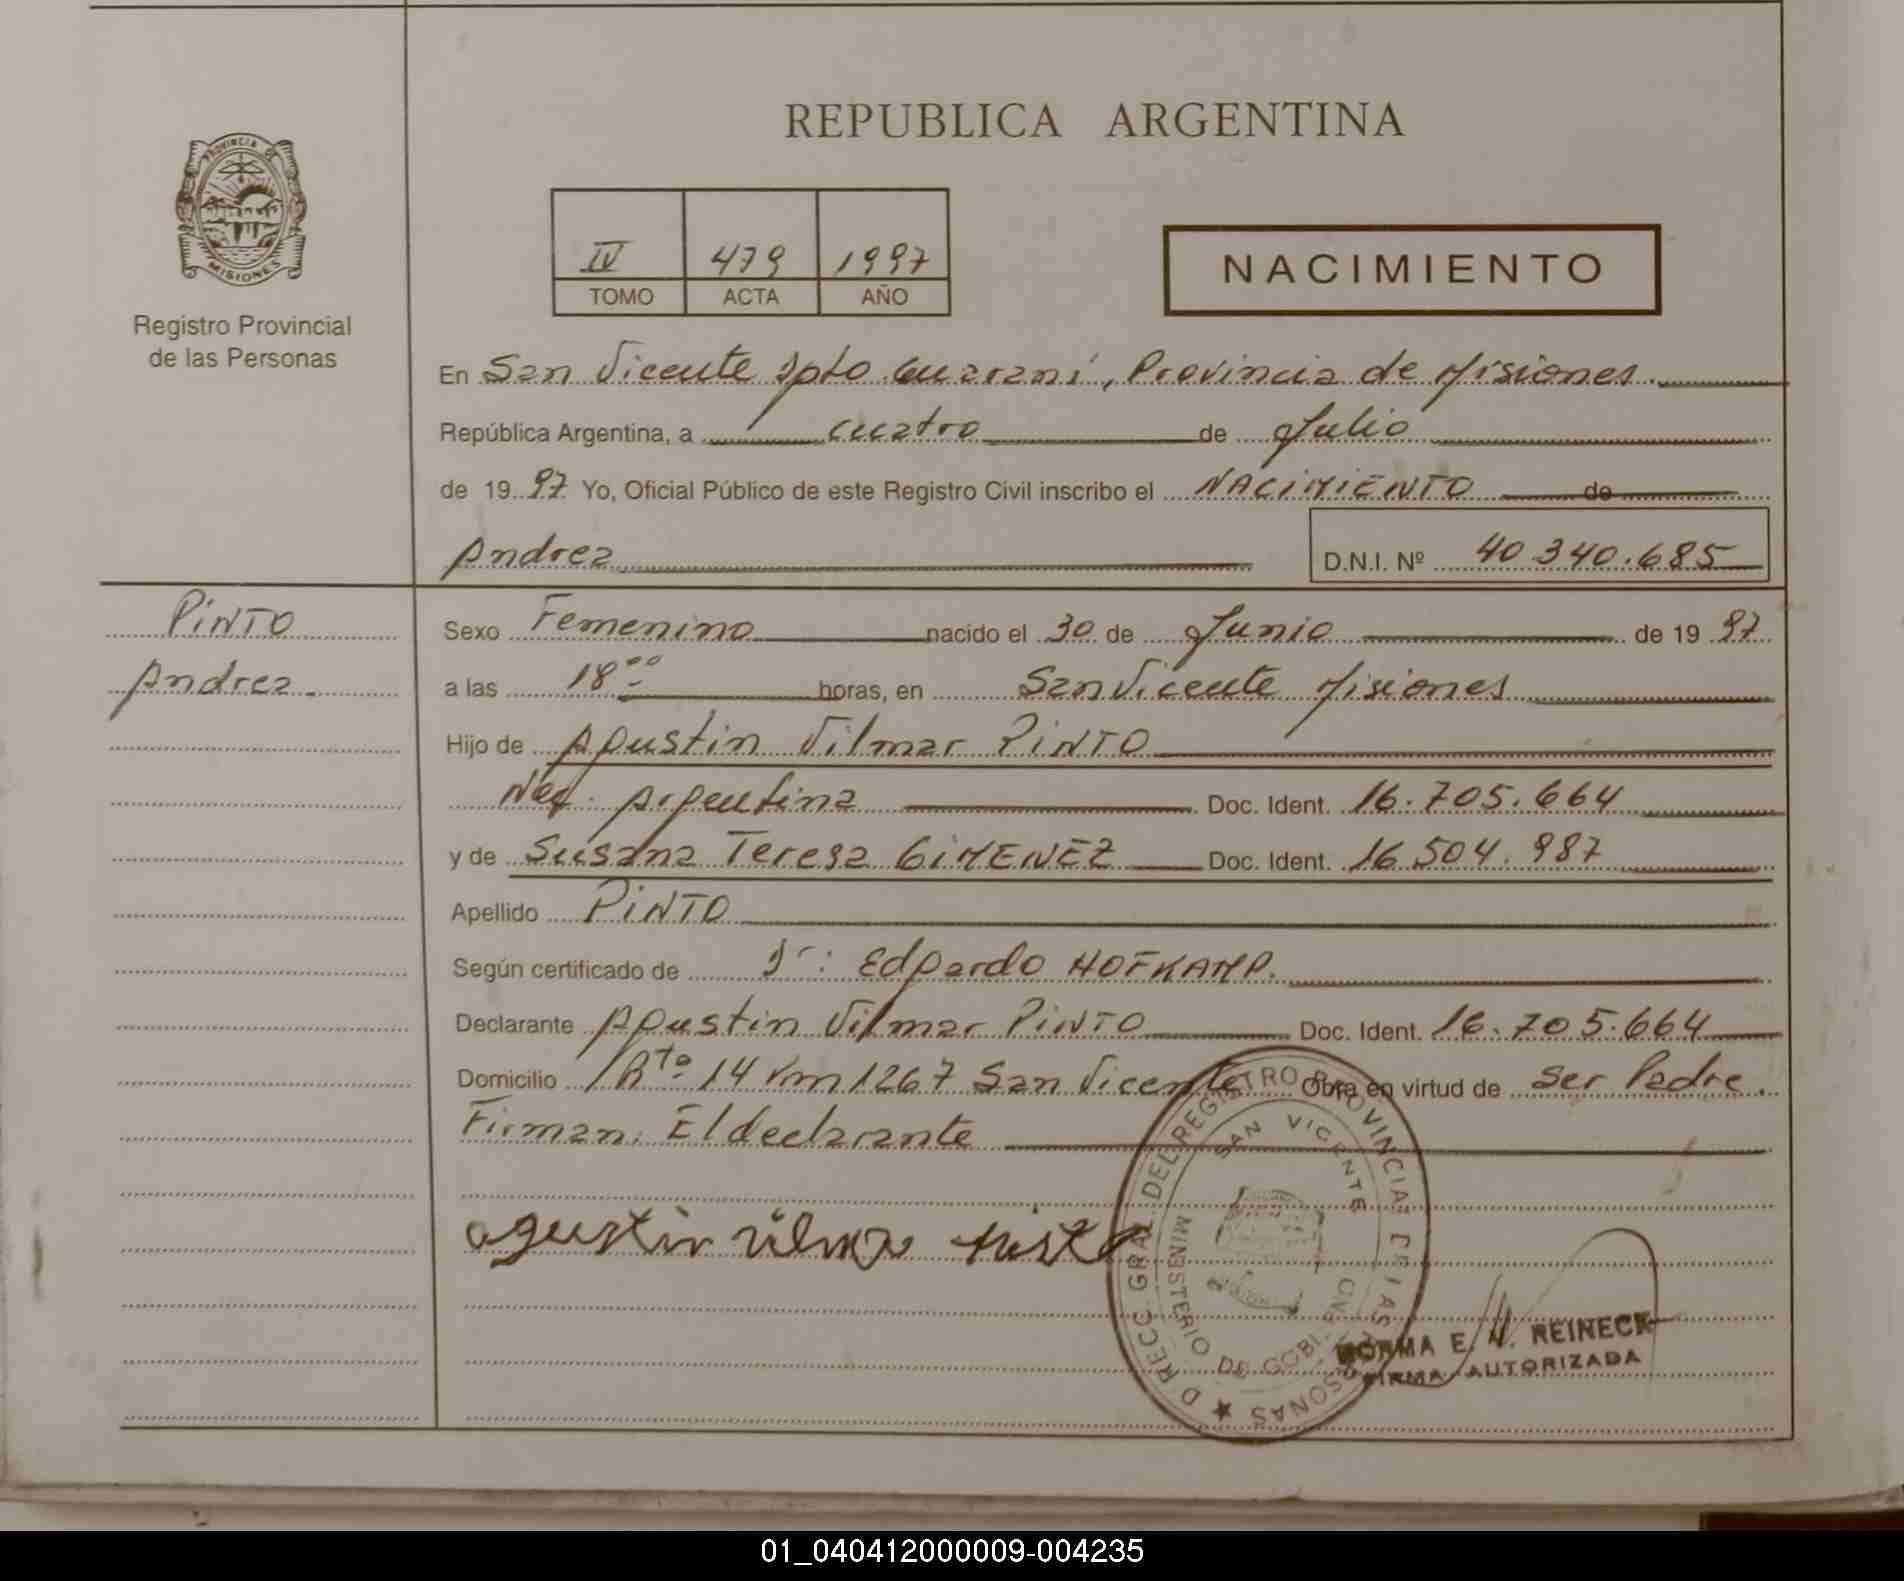 REPUBLICA ARGENTINA
PROVINCIA DE
MISIONES
Registro Provincial
de las Personas
IV 479 1997
TOMO ACTA AÑO
NACIMIENTO
En San Vicente Dpto Guaraní, Provincia de Misiones.
República Argentina, a cuatro de Julio
de 1997 Yo, Oficial Público de este Registro Civil inscribo el NACIMIENTO de
Andrea D.N.I. Nº 40.340.685
PINTO
Andrea.
Sexo Femenino nacido el 30 de Junio de 1997
a las 18⁰⁰ horas, en San Vicente Misiones
Hijo de Agustin Vilmar PINTO
Nac. Argentina Doc. Ident. 16.705.664
y de Susana Teresa GIMENEZ Doc. Ident. 16.504.987
Apellido PINTO
Según certificado de Dr: Edgardo HOFKAMP.
Declarante Agustin Vilmar PINTO Doc. Ident. 16.705.664
Domicilio Rta 14 Km 1267 San Vicente Obra en virtud de Ser Padre.
Firman: El declarante
agustin vilmar pinto
DIRECC. GRAL. DEL REGISTRO PROVINCIAL DE LAS PERSONAS
SAN VICENTE
MINISTERIO DE GOBIERNO
NORMA E. N. REINECK
FIRMA AUTORIZADA
01_040412000009-004235